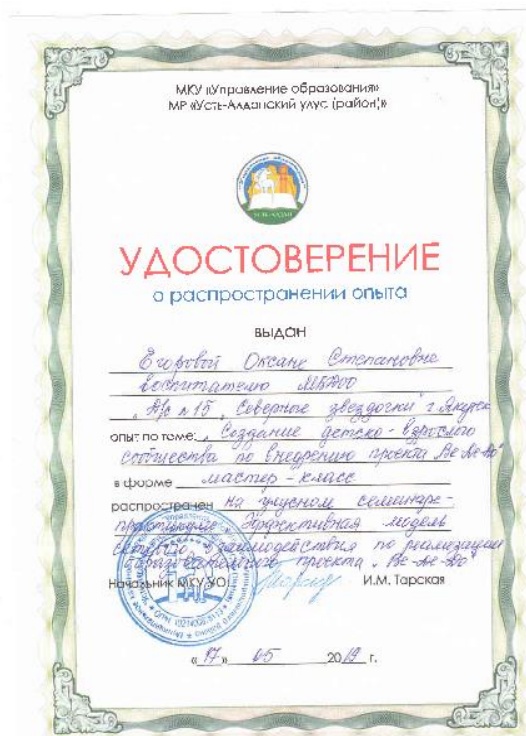 МКУ «Управление образования»
МР «Усть-Алданский улус (район)»
УДОСТОВЕРЕНИЕ
о распространении опыта
выдан
Егоровой Оксане Степановне
воспитателю МБДОУ
Д/с №15 „Северные звездочки" г. Якутск
опыт по теме: „Создание детско-взрослого
сообщества по внедрению проекта
в форме мастер-класс
распространен на улусном семинаре-
практикуме „Эффективная модель
сетевого взаимодействия по реализации
образовательного проекта
Начальник МКУ УО: И.М. Тарская
« 17 » 05 2019 г.